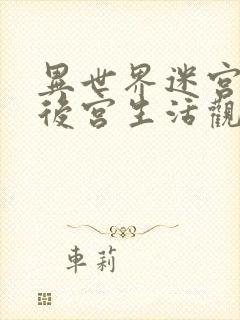 異世界迷宮
後宮生活觀
車莉